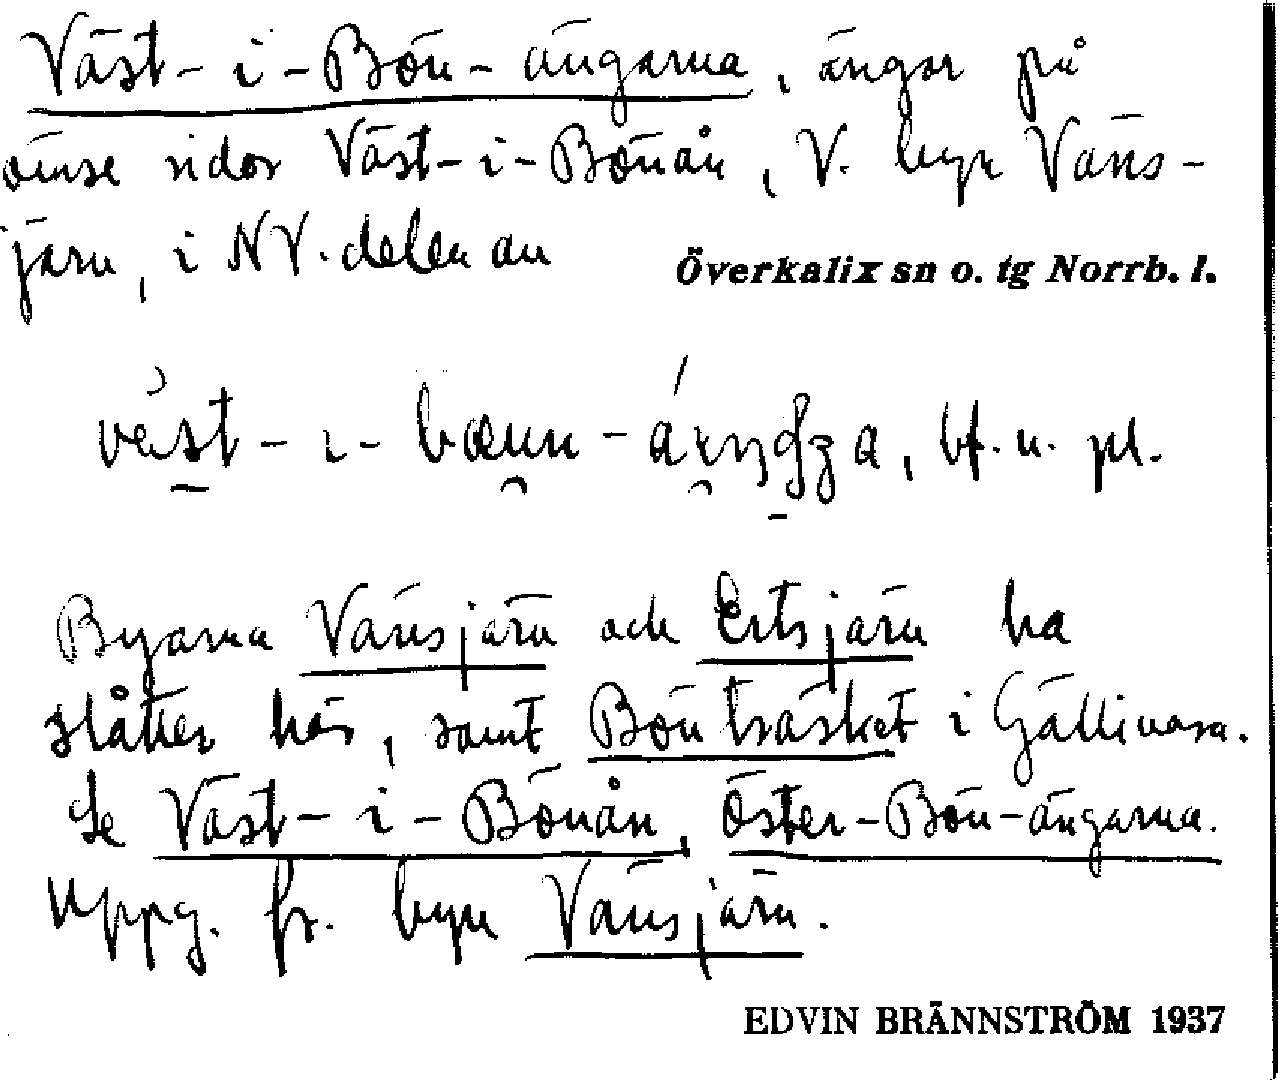 Väst-i-Bön-ängarna, ängar på
ömse sidor Väst-i-Bönån, V. byn Väns-
järn, i NV. delen av
Överkalix sn o. tg Norrb. l.
bf. n. pl.
Byarna Vänsjärn och Ertsjärn ha
slåtter här, samt Bönträsket i Gällivara.
Se Väst-i-Bönån, Öster-Bön-ängarna.
Uppg. fr. byn Vänsjärn.
EDVIN BRÄNNSTRÖM 1937